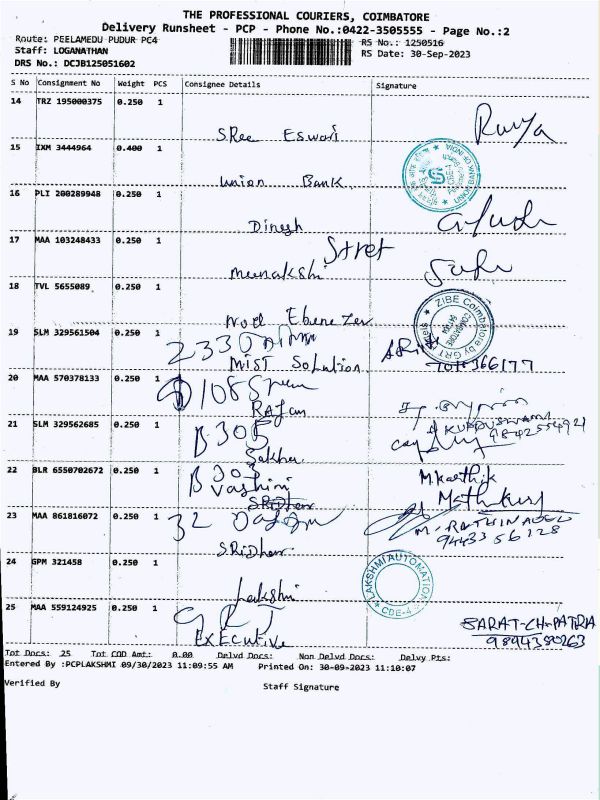 THE PROFESSIONAL COURIERS, COIMBATORE
Delivery Runsheet - PCP - Phone No.:0422-3505555 - Page No.:2
Route: PEELAMEDU PUDUR PC4
RS No.: 1250516
Staff: LOGANATHAN
RS Date: 30-Sep-2023
DRS No.: DCJB125051602
S No Consignment No Weight PCS Consignee Details Signature
14 TRZ 195000375 0.250 1
SRee Eswari
Ramya
15 IXM 3444964 0.400 1
Union Bank
16 PLI 200289948 0.250 1
Dinesh
17 MAA 103248433 0.250 1
Stret
meenakshi
18 TVL 5655089 0.250 1
Noel Ebenezer
ZIBE Coimbatore by GRT
COIMBATORE
19 SLM 329561504 0.250 1
2330
MIST Solution
20 MAA 570378133 0.250 1
108
Rajan
KUPPUSWAMI
9842554921
21 SLM 329562685 0.250 1
B 305
Sekhar
22 BLR 6550702672 0.250 1
B 303
Vashini
SRidhar
M.Karthik
23 MAA 861816072 0.250 1
32
SRidhar
M. RATHINAVEL
9443356128
24 GPM 321458 0.250 1
Lakshmi
LAKSHMI AUTOMATION
CBE-4
25 MAA 559124925 0.250 1
GRT
EXECutive
SARAT-CH-PATRA
9894380263
Tot Docs: 25 Tot COD Amt: 0.00 Delvd Docs: Non Delvd Docs: Delvy Pts:
Entered By :PCPLAKSHMI 09/30/2023 11:09:55 AM Printed On: 30-09-2023 11:10:07
Verified By
Staff Signature